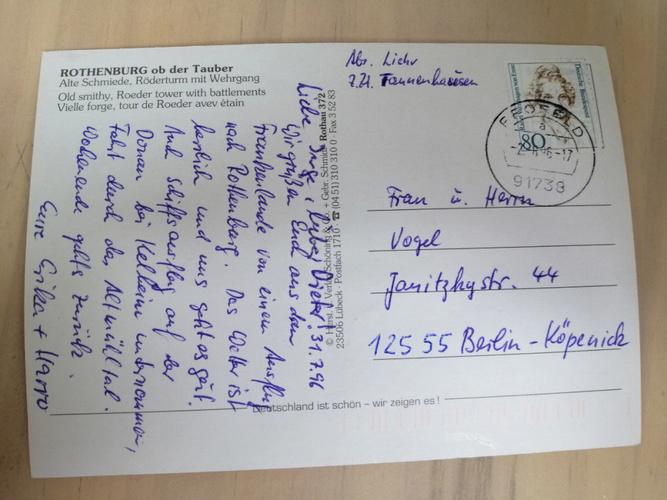 ROTHENBURG ob der Tauber
Alte Schmiede, Röderturm mit Wehrgang
Old smithy, Roeder tower with battlements
Vielle forge, tour de Roeder avev étain
Abs. Lichr
z.Zt. Tannenhausen
Deutsche Bundespost
80
91738
Frau u. Herrn
Vogel
Janitzkystr. 44
12555 Berlin-Köpenick
Liebe Inge, lieber Dieter! 31.7.96
Wir grüßen Euch aus dem
Frankenlande von einem Ausflug
nach Rothenburg. Das Wetter ist
herrlich und uns geht es gut.
Auch Schiffsausflug auf der
Donau bei Kelheim unternommen,
Fahrt durch das Altmühltal.
Wochenende gehts zurück.
Eure Erika + Harro
© Horst. J. Verlag Schöning & Co + Gebr. Schmidt Rothau 372
23506 Lübeck · Postfach 1710 · ☎ (04 51) 310 310 0 · Fax 3 52 83
Deutschland ist schön – wir zeigen es!